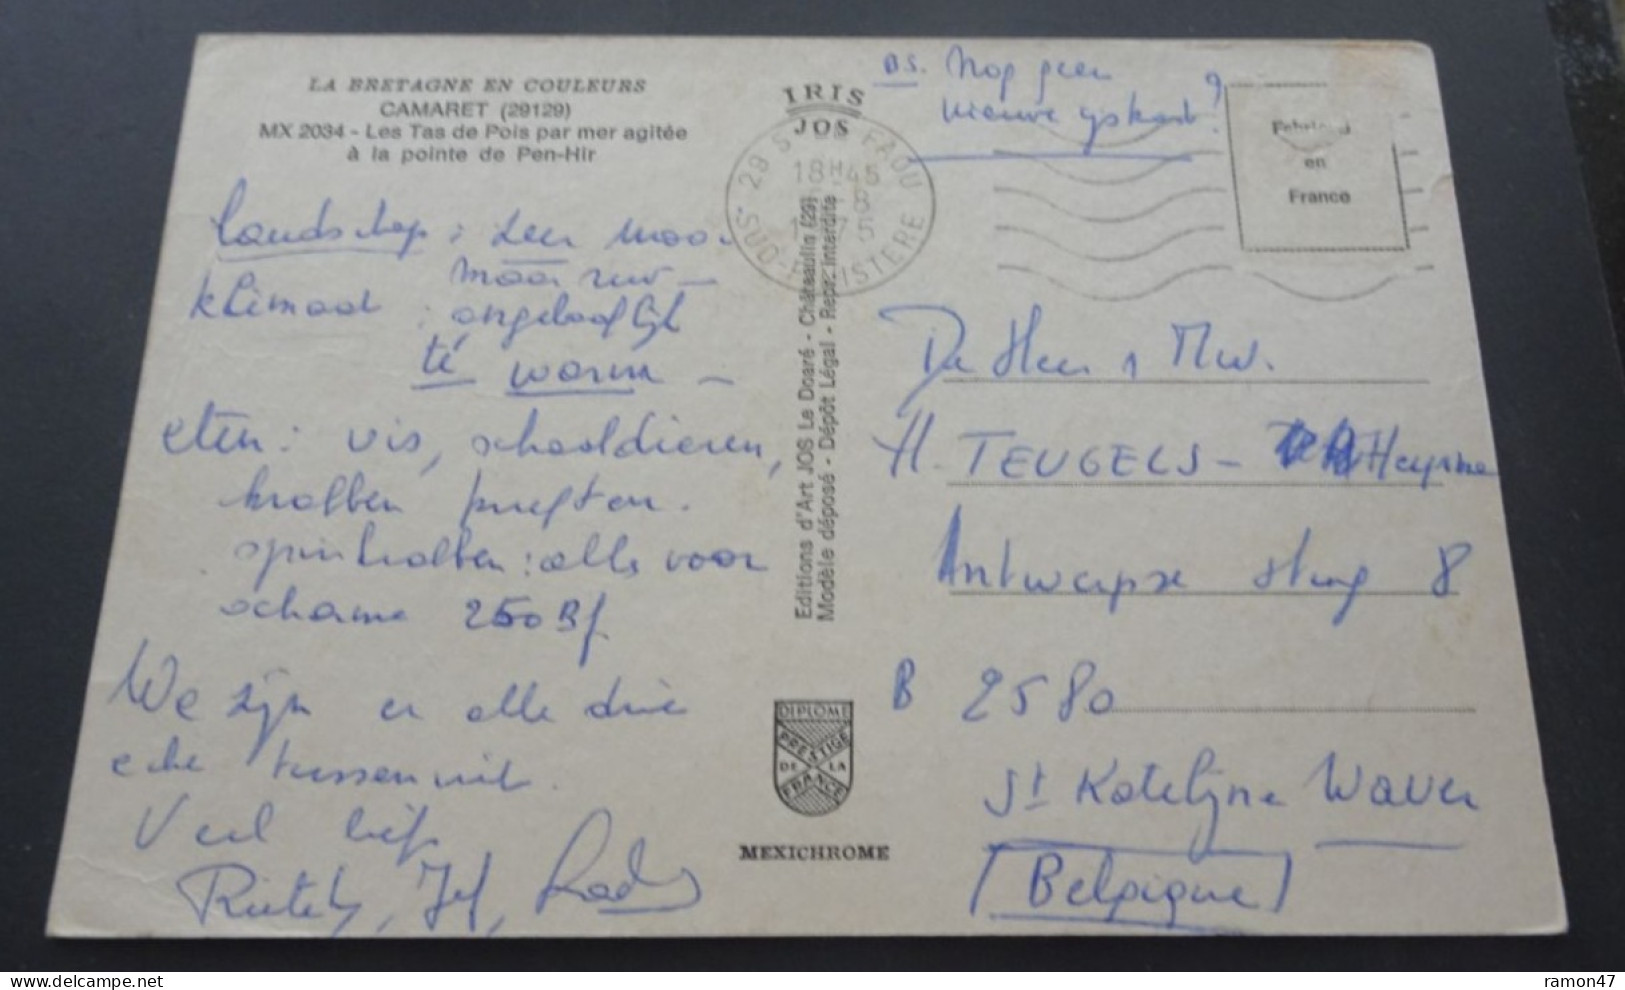 LA BRETAGNE EN COULEURS
CAMARET (29129)
MX 2034 - Les Tas de Pois par mer agitée
à la pointe de Pen-Hir
Landschap : zeer mooi
maar ruw -
Klimaat : ongelooflijk
te warm -
eten : vis, schaaldieren,
krabben kreeften.
spinkrabben : alles voor
schamele 250 Bf
We zijn er alle drie
eche tussen uit.
Veel liefs
Jef,
IRIS
JOS
29 FAOU
18H45
8
1975
SUD-FINISTERE
Editions d'Art JOS Le Doaré - Châteaulin (29)
Modèle déposé - Dépôt Légal - Repr. interdite
DIPLOME
PRESTIGE
DE LA
FRANCE
MEXICHROME
P.S. Nog geen
nieuwe ijskast ?
Fabriqué
en
France
De Heer & Mw.
H. TEUGELS -
Antwerpse stwg 8
B 2580
St Katelijne Waver
(Belgique)
ramon47